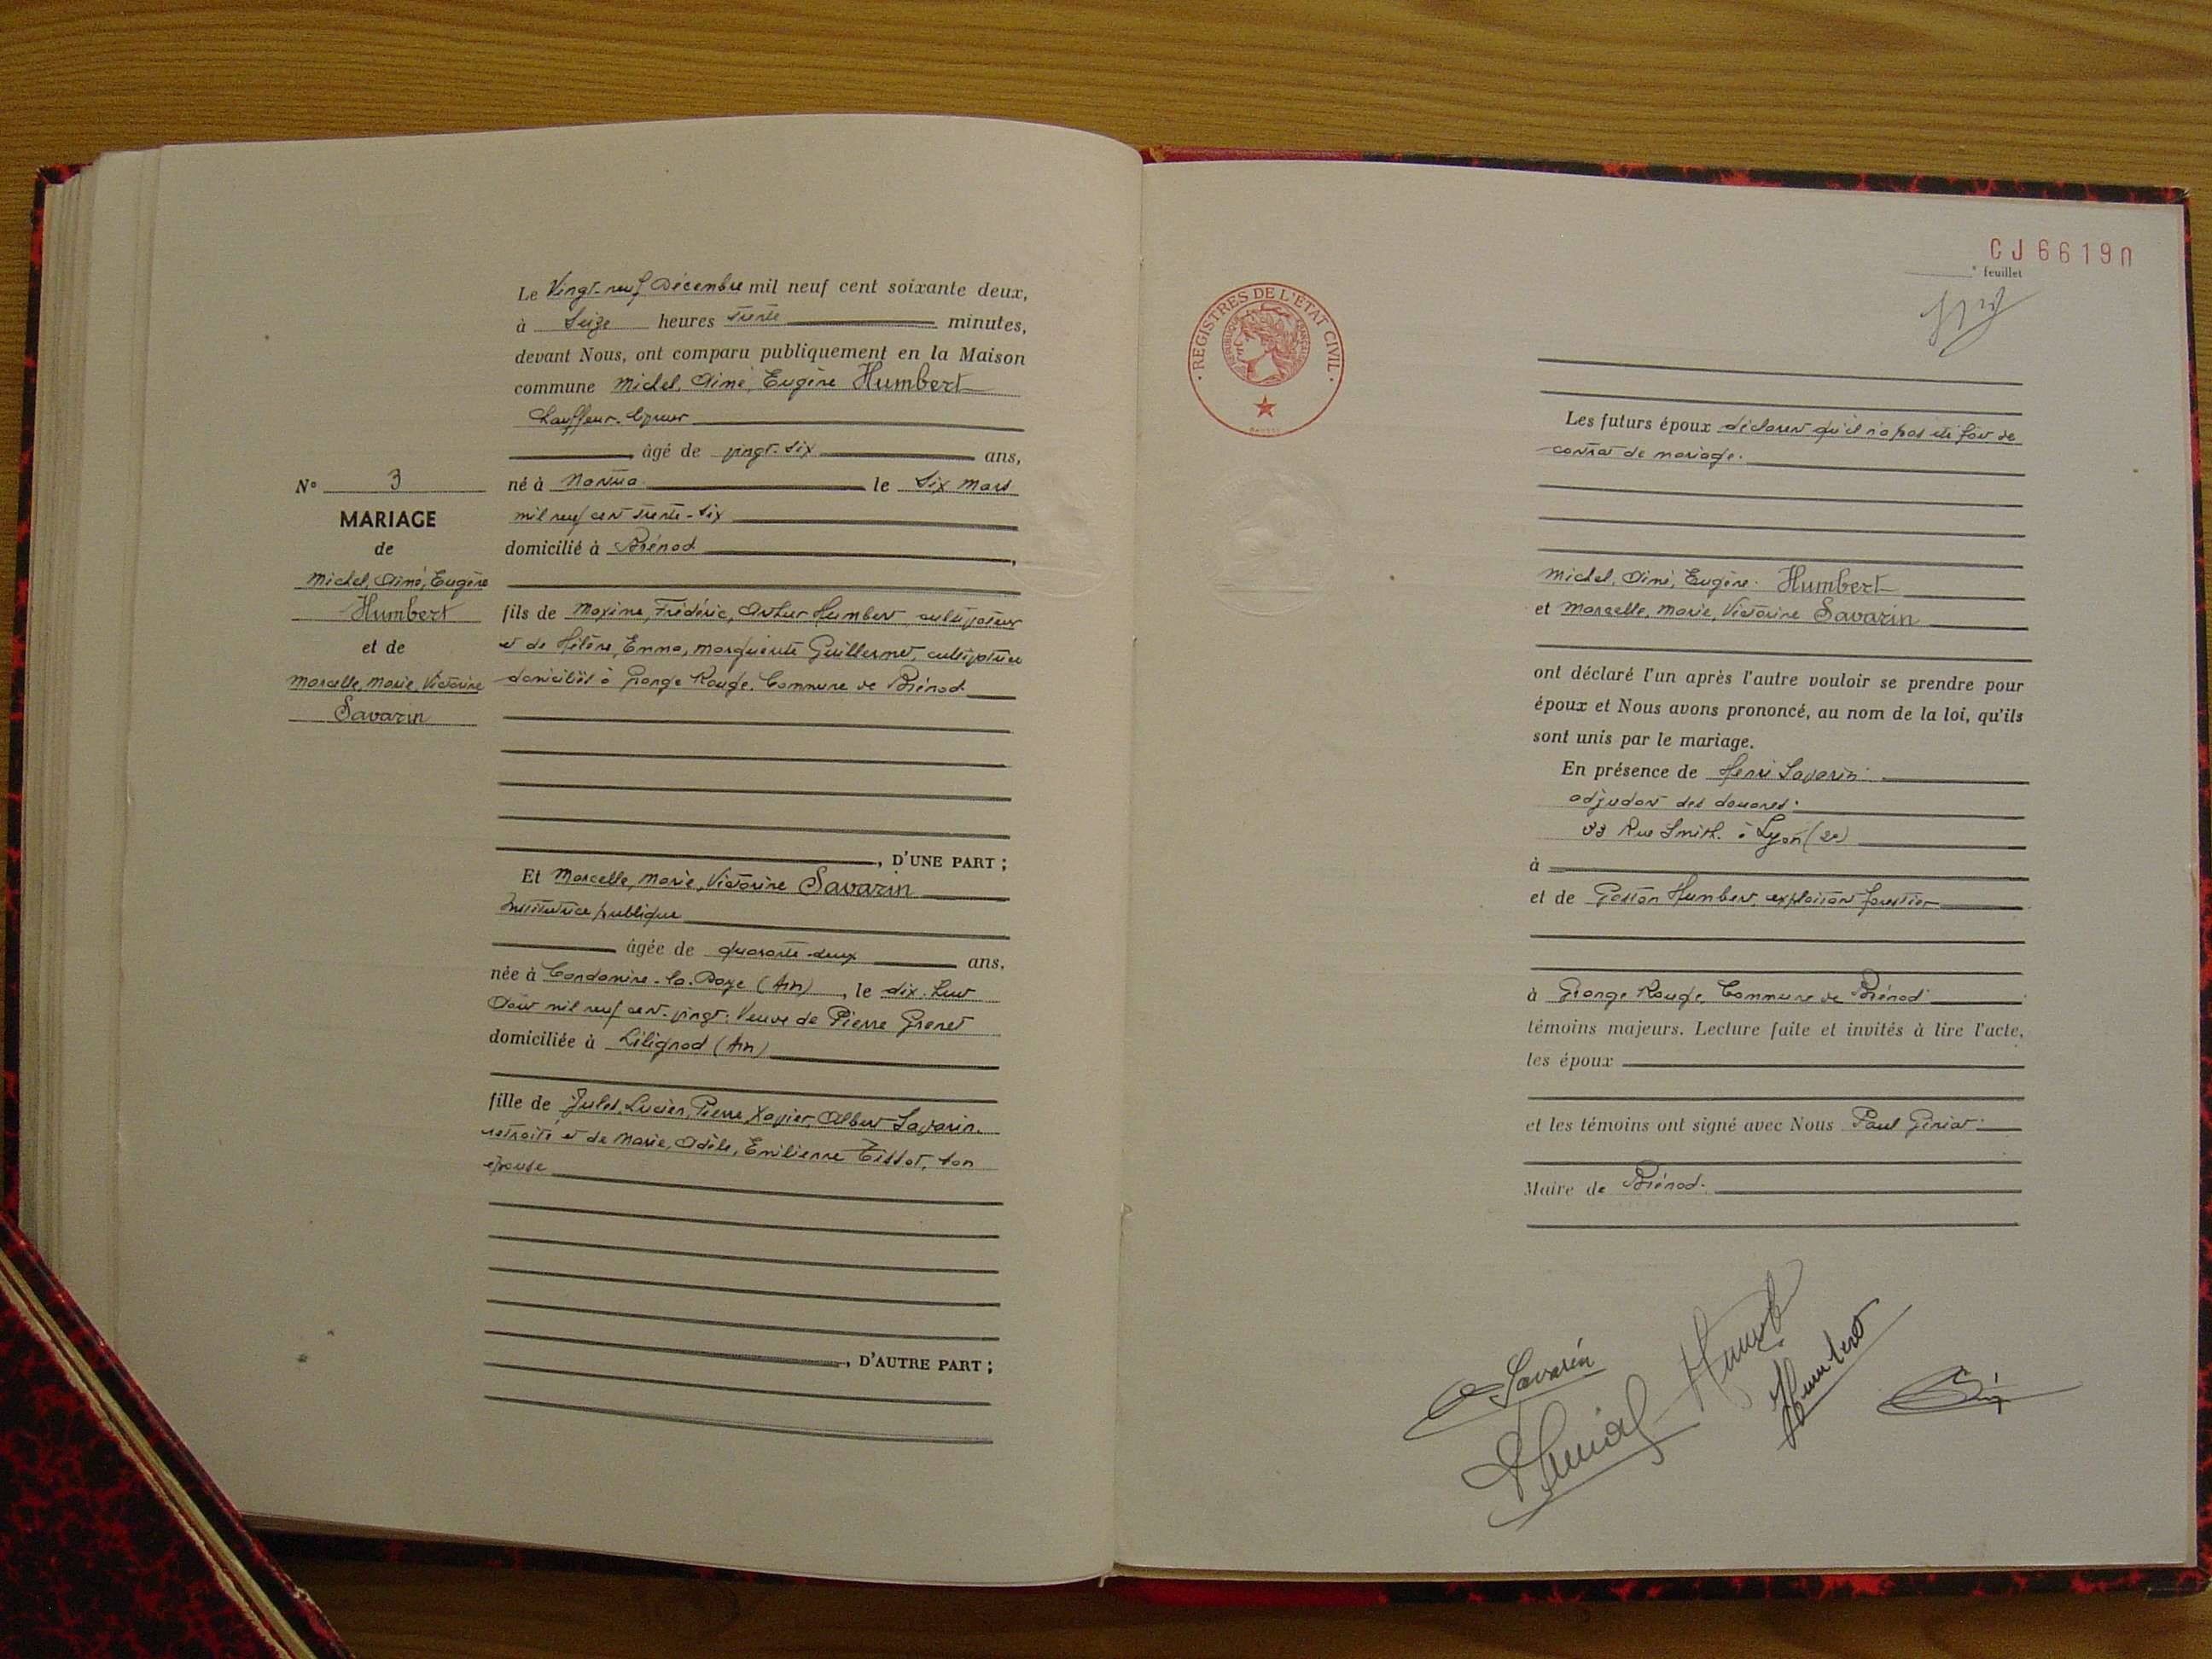 N° 3
MARIAGE
de
Michel, Aimé, Eugène
Humbert
et de
Marcelle, Marie, Victorine
Savarin
Le Vingt-neuf Décembre mil neuf cent soixante deux,
à Seize heures trente minutes,
devant Nous, ont comparu publiquement en la Maison
commune Michel, Aimé, Eugène Humbert
Chauffeur-livreur
âgé de vingt-six ans,
né à Nantua le Six mars
mil neuf cent trente-six
domicilié à Brénod,
fils de Maxime, Frédéric, Arthur Humbert, cultivateur
et de Hélène, Emma, Marguerite Guillermet, cultivatrice
domiciliés à Grange Rouge, Commune de Brénod
, D'UNE PART ;
Et Marcelle, Marie, Victorine Savarin
Institutrice publique
âgée de quarante-deux ans,
née à Condamine-la-Doye (Ain), le dix-huit
Août mil neuf cent-vingt. Veuve de Pierre Grenet
domiciliée à Lilignod (Ain)
fille de Jules, Lucien, Pierre, Xavier, Albert Savarin
retraité et de Marie, Adèle, Emilienne Tissot, son
épouse
, D'AUTRE PART ;
CJ 66190
feuillet
REGISTRES DE L'ÉTAT CIVIL
RÉPUBLIQUE FRANÇAISE
Les futurs époux déclarent qu'il n'a pas été fait de
contrat de mariage.
Michel, Aimé, Eugène Humbert
et Marcelle, Marie, Victorine Savarin
ont déclaré l'un après l'autre vouloir se prendre pour
époux et Nous avons prononcé, au nom de la loi, qu'ils
sont unis par le mariage.
En présence de Henri Savarin
adjudant des douanes.
33 Rue Smith. à Lyon (2e)
à
et de Gaston Humbert, exploitant forestier
à Grange Rouge, Commune de Brénod
témoins majeurs. Lecture faite et invités à lire l'acte,
les époux
et les témoins ont signé avec Nous Paul Gériat
Maire de Brénod.
Savarin
Humbert